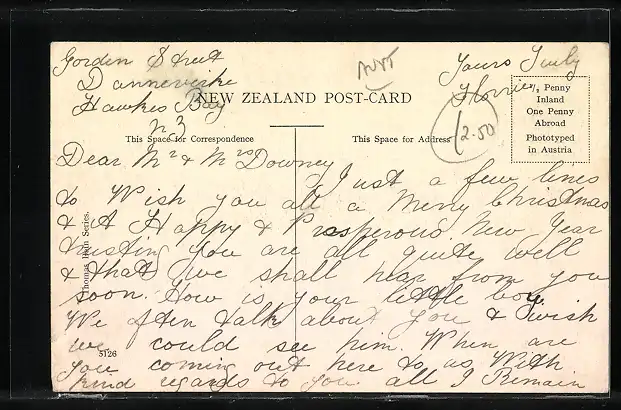 Gordon Street
Dannevirke
Hawkes Bay
N.Z
Yours Truly
Florrie
NEW ZEALAND POST-CARD
½ Penny
Inland
One Penny
Abroad
Phototyped
in Austria
12.50
This Space for Correspondence
This Space for Address
Dear Mr & Mrs Downey
Just a few lines
to Wish you all a Merry Christmas
& A Happy & Prosperous New Year
trusting you are all quite well
& that we shall hear from you
soon. How is your little boy.
We often talk about you & wish
we could see him. When are
you coming out here to us With
kind regards to you all I Remain
Series.
5126